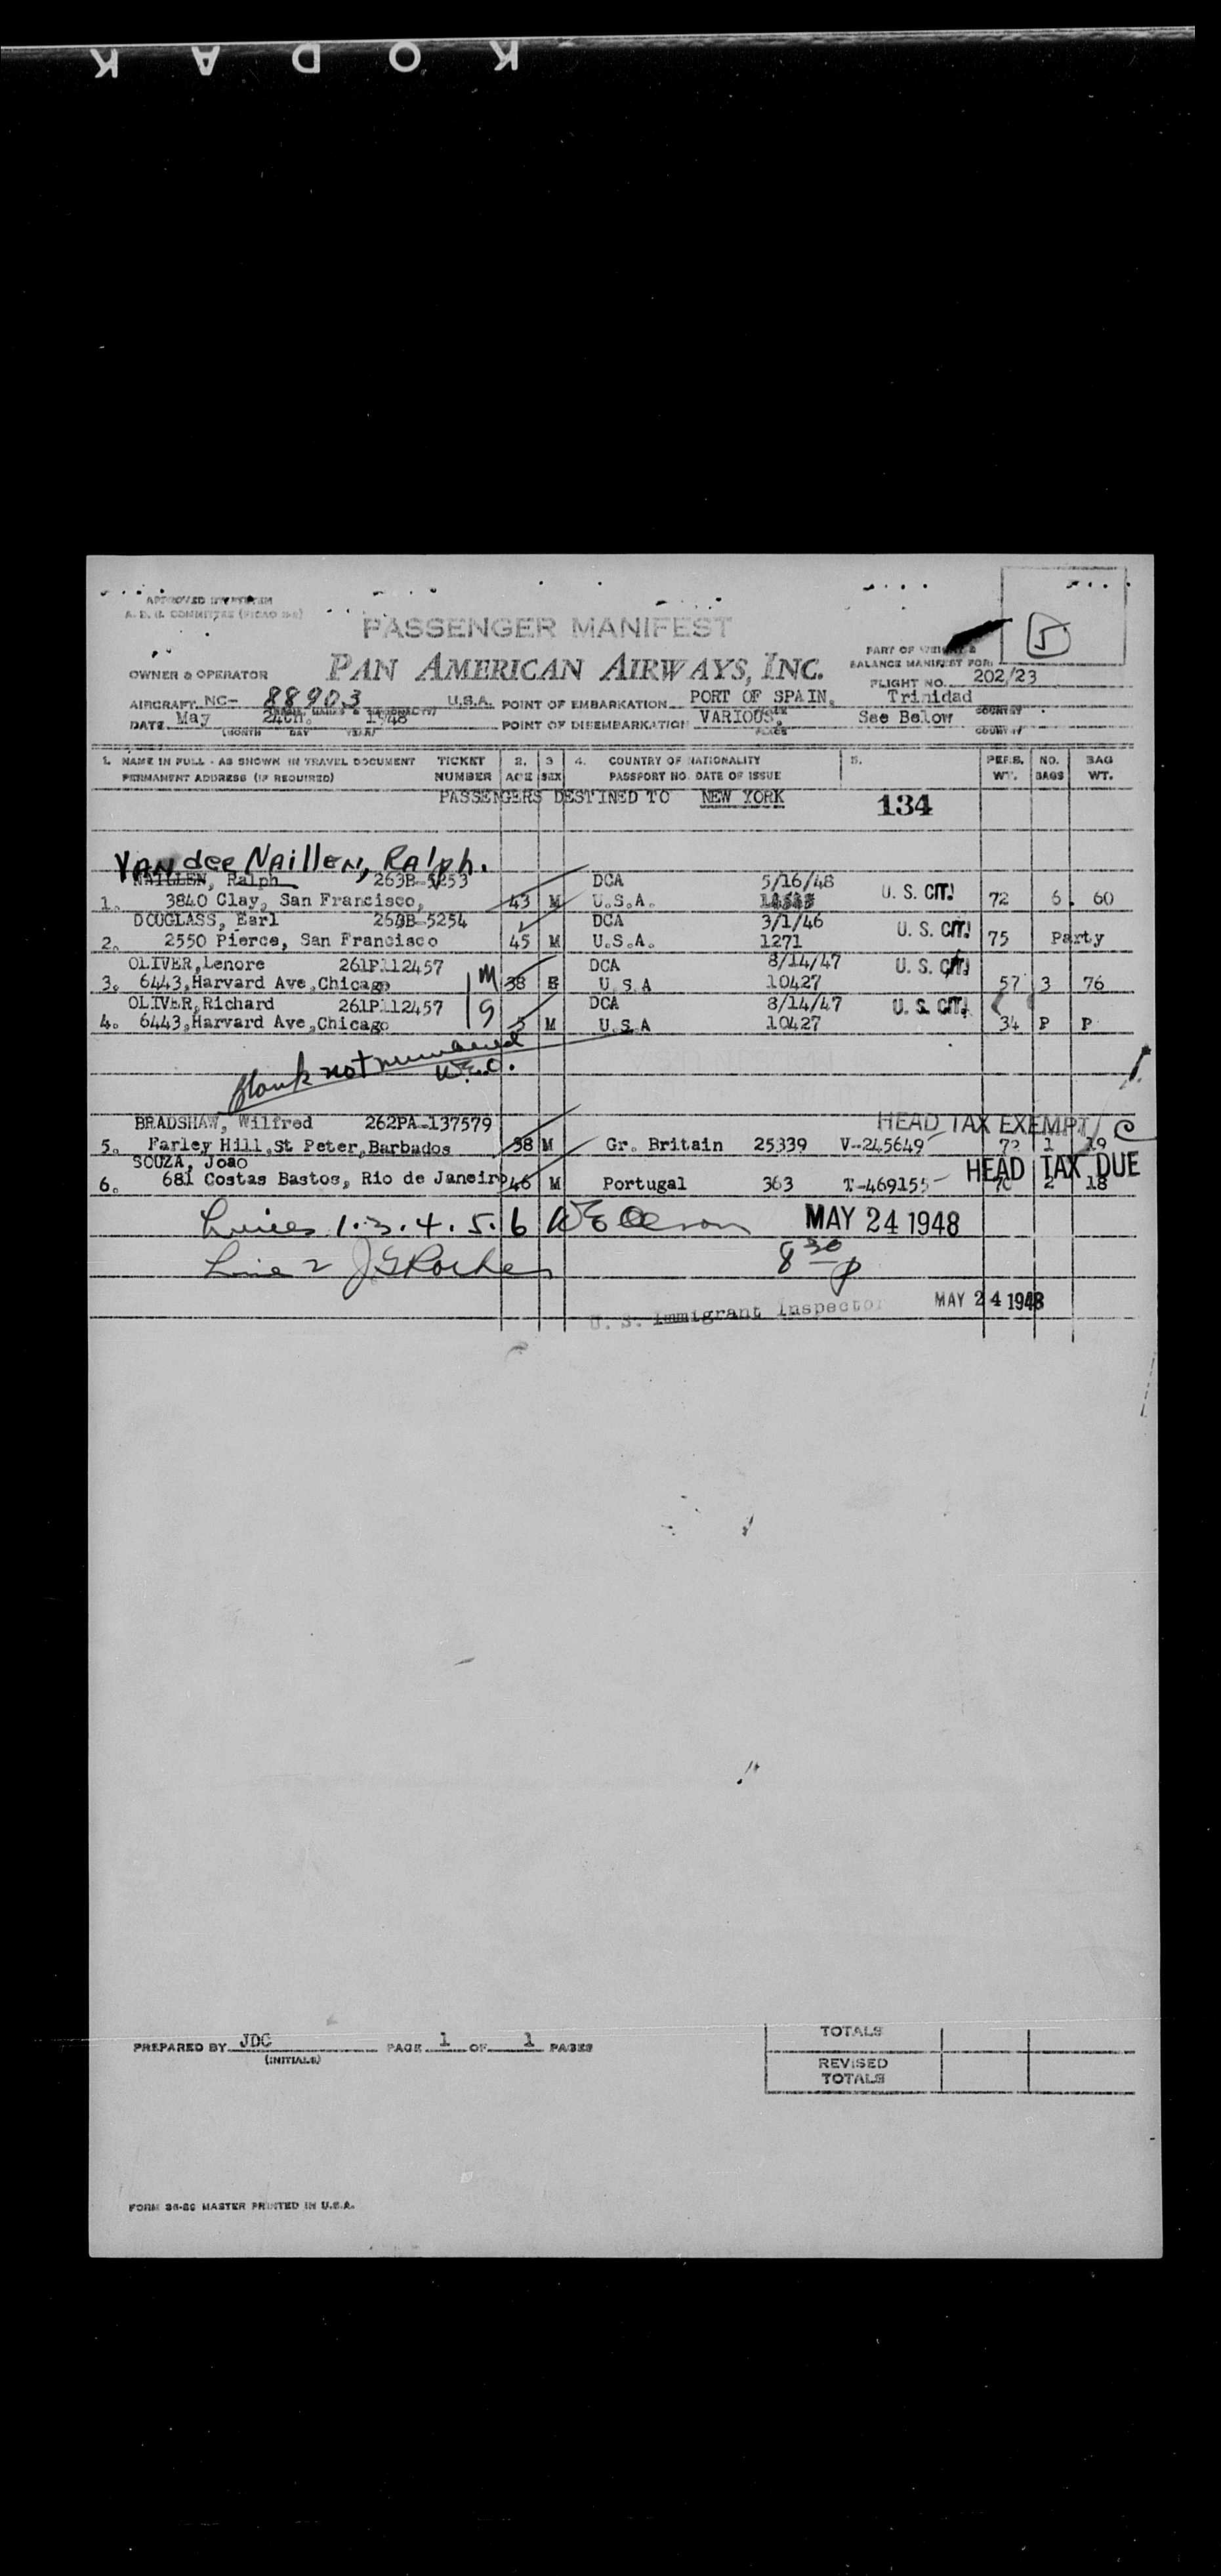 KODAK
APPROVED BY SYSTEM
A. D. H. COMMITTEE
PASSENGER MANIFEST
5
PAN AMERICAN AIRWAYS, INC.
PART OF WEIGHT &
BALANCE MANIFEST FOR:
OWNER & OPERATOR
FLIGHT NO. 202/23
AIRCRAFT NC- 88903 U.S.A. POINT OF EMBARKATION PORT OF SPAIN, Trinidad
DATE May 24th. 1948 POINT OF DISEMBARKATION VARIOUS. See Below
(MONTH DAY YEAR) PLACE COUNTRY
1. NAME IN FULL - AS SHOWN IN TRAVEL DOCUMENT TICKET 2. 3 4. COUNTRY OF NATIONALITY 5. PERS. NO. BAG
PERMANENT ADDRESS (IF REQUIRED) NUMBER AGE SEX PASSPORT NO. DATE OF ISSUE WT. BAGS WT.
PASSENGERS DESTINED TO NEW YORK 134
VAN der NAILLEN, RALPH.
NAILLEN, Ralph 263B-5253 DCA 5/16/48 U. S. CIT.
1. 3840 Clay, San Francisco, 43 M U.S.A. 72 6. 60
DOUGLASS, Earl 263B-5254 DCA 3/1/46 U. S. CIT.
2. 2550 Pierce, San Francisco 45 M U.S.A. 1271 75 Party
OLIVER,Lenore 261P112457 DCA 8/14/47 U. S. CIT.
3. 6443,Harvard Ave,Chicago M 38 F U.S.A 10427 57 3 76
OLIVER,Richard 261P112457 DCA 8/14/47 U. S. CIT.
4. 6443,Harvard Ave,Chicago S 5 M U.S.A 10427 34 P P
Blank not numbered
W.E.O.
BRADSHAW, Wilfred 262PA-137579 HEAD TAX EXEMPT C
5. Farley Hill,St Peter,Barbados 38 M Gr. Britain 25339 V-245649 72 1 19
SOUZA, Joao HEAD TAX DUE
6. 681 Costas Bastos, Rio de Janeiro 46 M Portugal 363 T-469155 70 2 18
Lines 1.3.4.5.6 WE Olson MAY 24 1948
Line 2 8 30 p
U. S. Immigrant Inspector MAY 24 1948
PREPARED BY JDC PAGE 1 OF 1 PAGES
(INITIALS)
TOTALS
REVISED
TOTALS
FORM 36-86 MASTER PRINTED IN U.S.A.